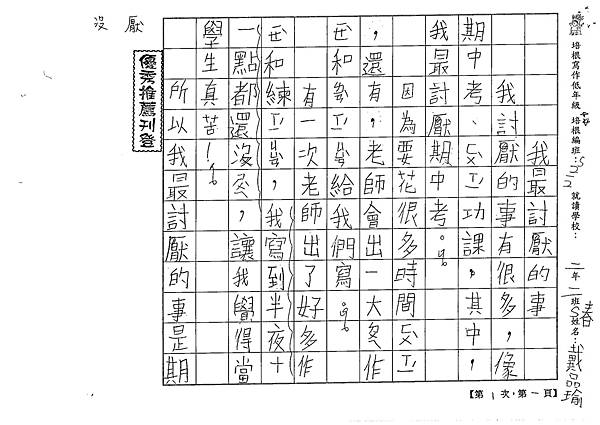 培根寫作低年級 培根編班:
就讀學校:
二年一班 姓名:戴品瑜
春
我最討厭的事
我討厭的事有很多,像
期中考、功課。其中,
我最討厭期中考。
因為要花很多時間
,還有,老師會出一大作
和給我們寫。
有一次,老師出了好多作
和練,我寫到半夜十
一點都還沒,讓我覺得當
學生真苦!
所以我最討厭的事是期
優秀推薦刊登
厭
沒
【第1次,第一頁】